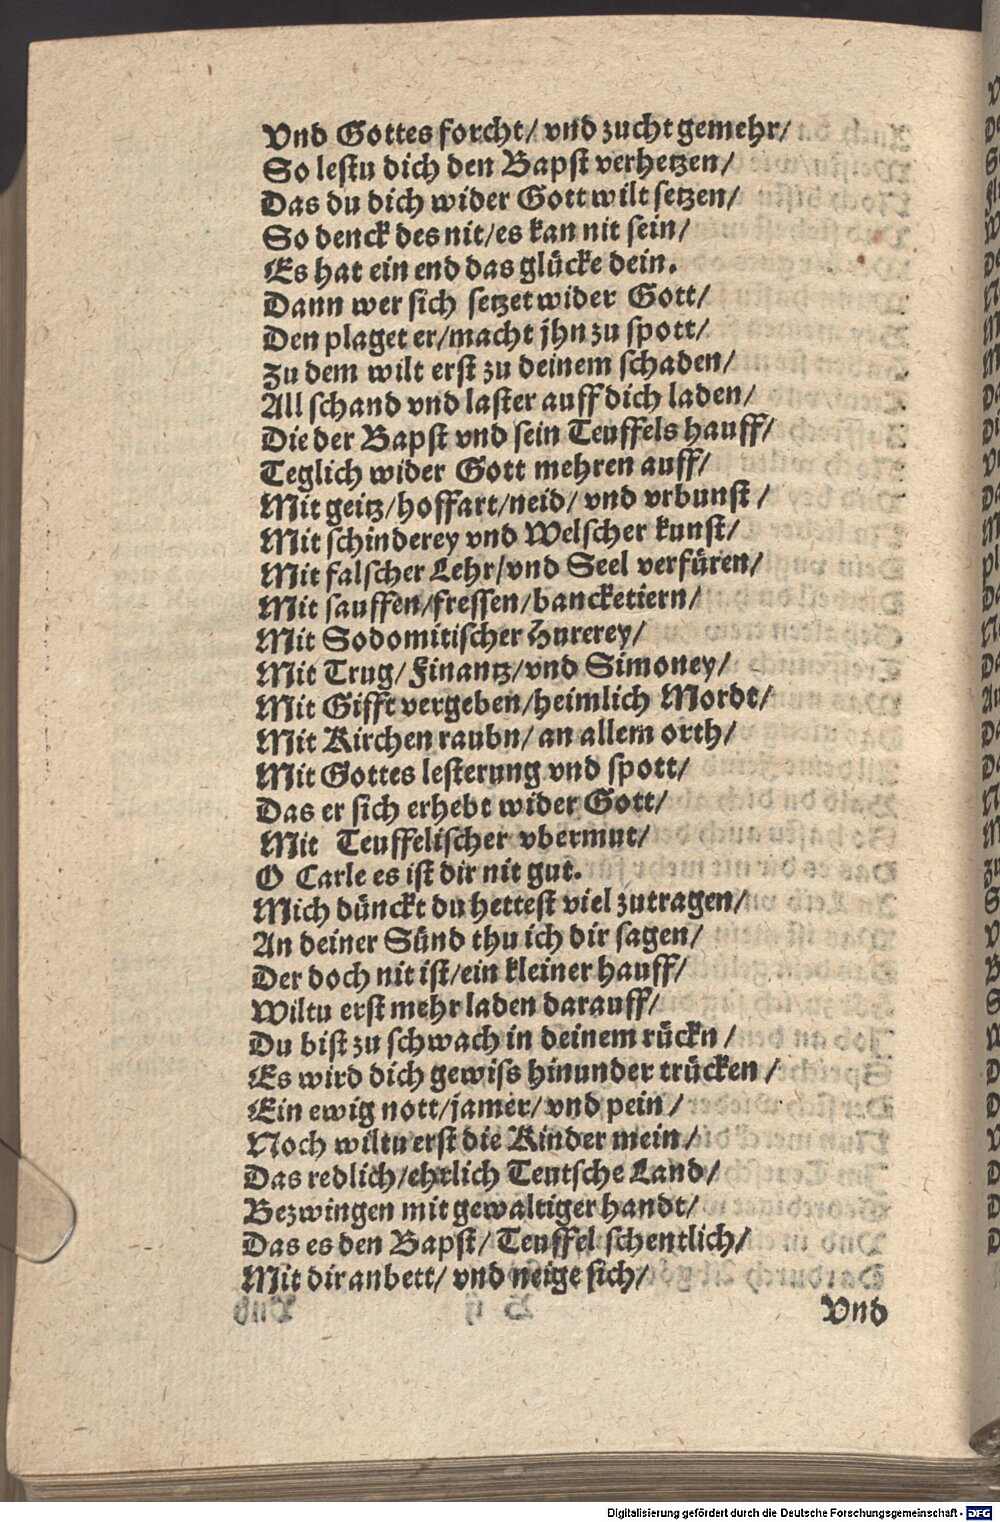 Vnd Gottes forcht/ vnd zucht gemehr/
So lestu dich den Bapst verhetzen/
Das du dich wider Gott wilt setzen/
So denck des nit/es kan nit sein/
Es hat ein end das glücke dein.
Dann wer sich setzet wider Gott/
Den plaget er/macht jhn zu spott/
Zu dem wilt erst zu deinem schaden/
All schand vnd laster auff dich laden/
Die der Bapst vnd sein Teuffels hauff/
Teglich wider Gott mehren auff/
Mit geitz/hoffart/neid/ vnd vrbunst /
Mit schinderey vnd Welscher kunst/
Mit falscher Lehr/vnd Seel verfüren/
Mit sauffen/fressen/bancketiern/
Mit Sodomitischer Hurerey/
Mit Trug/ Finantz/vnd Simoney/
Mit Gifft vergeben/heimlich Mordt/
Mit Kirchen raubn/ an allem orth/
Mit Gottes lesterung vnd spott/
Das er sich erhebt wider Gott/
Mit Teuffelischer vbermut/
O Carle es ist dir nit gut.
Mich dünckt du hettest viel zutragen/
An deiner Sünd thu ich dir sagen/
Der doch nit ist/ein kleiner hauff/
Wiltu erst mehr laden darauff/
Du bist zu schwach in deinem rückn /
Es wird dich gewiss hinunder trücken /
Ein ewig nott/jamer/ vnd pein /
Noch wiltu erst die Kinder mein /
Das redlich/ehrlich Teutsche Land/
Bezwingen mit gewaltiger handt/
Das es den Bapst/ Teuffel schentlich/
Mit dir anbett/ vnd neige sich/
Vnd
Digitalisierung gefördert durch die Deutsche Forschungsgemeinschaft - DFG